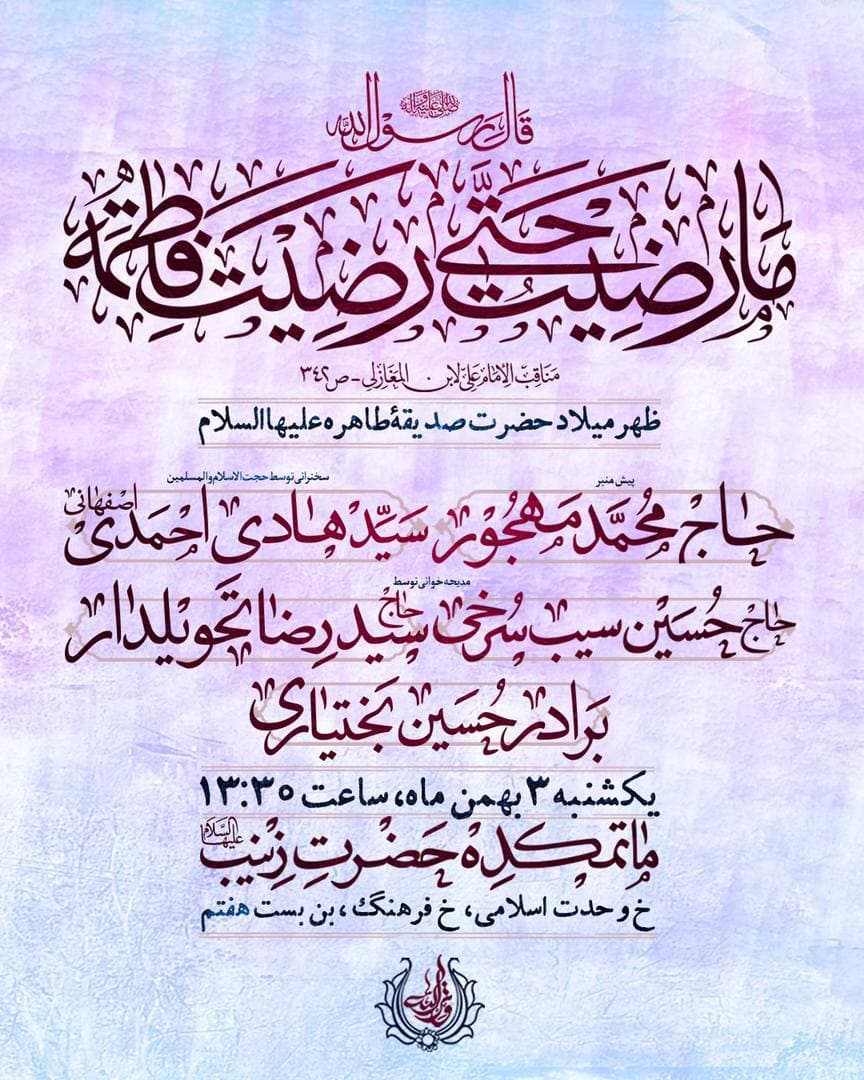 قال رسول الله صلی الله علیه وآله
ما رَضِیتُ حَتّی رَضِیَت فاطِمَه
مناقب الامام علی لابن المغازلی - ص ۳۴۲
ظهر میلاد حضرت صدیقهٔ طاهره علیها السلام
پیش منبر
حاج محمد مهجور
سخنرانی توسط حجت الاسلام والمسلمین
سید هادی احمدی اصفهانی
مدیحه خوانی توسط
حاج حسین سیب سرخی حاج سید رضا تحویلدار
برادر حسین بختیاری
یکشنبه ۳ بهمن ماه، ساعت ۱۳:۳۰
ماتمکده حضرت زینب علیها السلام
خ وحدت اسلامی، خ فرهنگ، بن بست هفتم